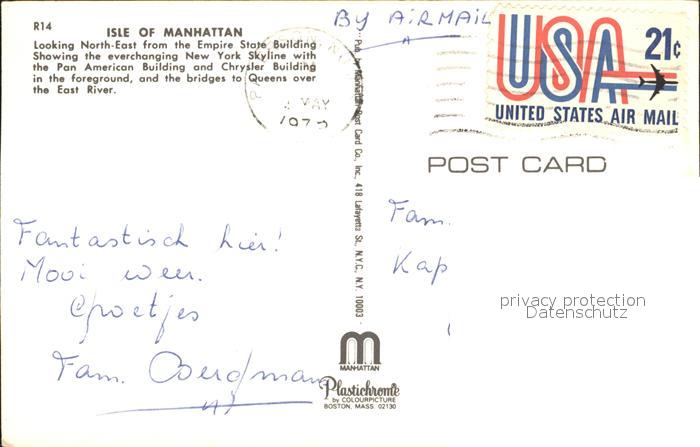 R14
ISLE OF MANHATTAN
Looking North-East from the Empire State Building
Showing the everchanging New York Skyline with
the Pan American Building and Chrysler Building
in the foreground, and the bridges to Queens over
the East River.
BY AiRMAiL
USA 21¢
UNITED STATES AIR MAIL
MAY
POST CARD
Pub. by Manhattan Post Card Co., Inc., 418 Lafayette St., N.Y.C., N.Y. 10003
Fantastisch hier!
Mooi weer.
Groetjes
Fam. Bergman
Fam.
Kap
privacy protection
Datenschutz
m
MANHATTAN
Plastichrome
by COLOURPICTURE
BOSTON, MASS. 02130